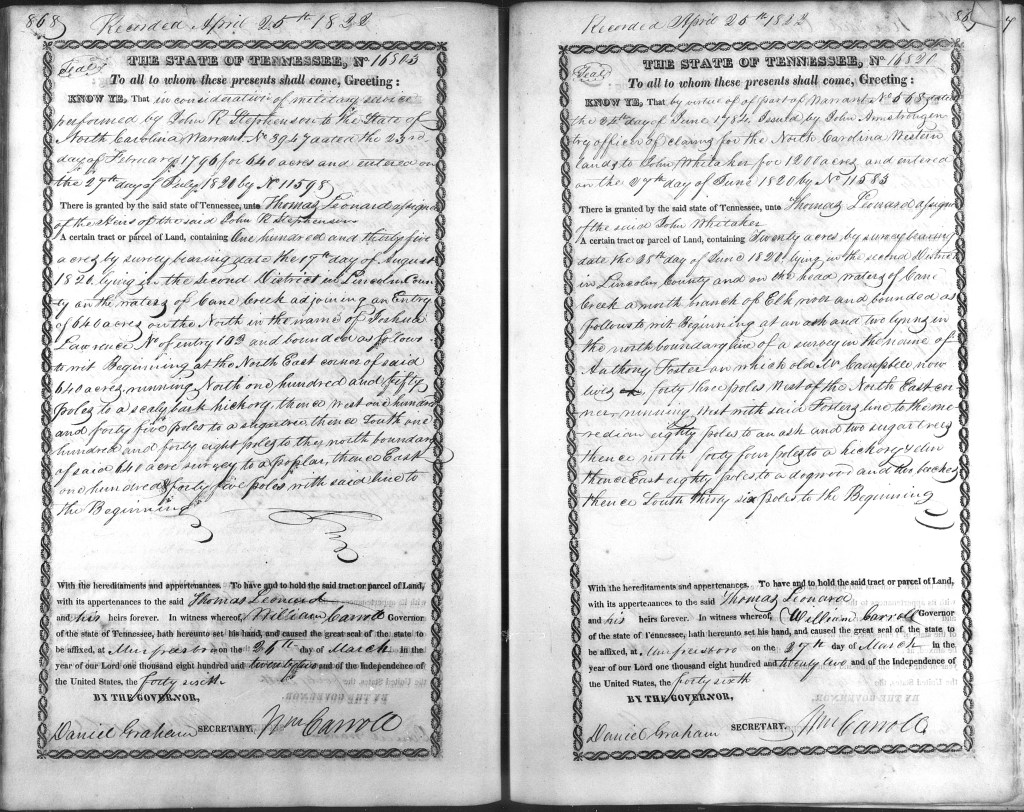 868
Recorded April 25th 1822
(Seal) THE STATE OF TENNESSEE, No 16803
To all to whom these presents shall come, Greeting:
KNOW YE, That in consideration of military service
performed by John R Stephenson to the State of
North Carolina Warrant No 3947 dated the 23rd
day of February 1796 for 640 acres and entered on
the 27th day of July 1820 by No 11598
There is granted by the said state of Tennessee, unto Thomas Leonard assignee
of the heirs of the said John R Stephenson
A certain tract or parcel of Land, containing One hundred and thirty five
acres by survey bearing date the 19th day of August
1820 lying in the Second District in Lincoln Coun
ty on the waters of Cane Creek adjoining an Entry
of 640 acres on the North in the name of Joshua
Lawrence No of entry 103 and bounded as follows
to wit Beginning at the North East corner of said
640 acres running North one hundred and fifty
poles to a scaly bark hickory, thence West one hundred
and forty five poles to a sugartree thence South one
hundred and forty eight poles to the north boundary
of said 640 acre survey to a poplar, thence East
one hundred & forty five poles with said line to
the Beginning
With the hereditaments and appertenances. To have and to hold the said tract or parcel of Land,
with its appertenances to the said Thomas Leonard
and his heirs forever. In witness whereof, William Carroll Governor
of the state of Tennessee, hath hereunto set his hand, and caused the great seal of the state to
be affixed, at Murfreesboro on the 26th day of March in the
year of our Lord one thousand eight hundred and twenty two and of the Independence of
the United States, the forty sixth
BY THE GOVERNOR,
Daniel Graham SECRETARY. Wm Carroll
Recorded April 25th 1822
(Seal) THE STATE OF TENNESSEE, No 16820
To all to whom these presents shall come, Greeting:
KNOW YE, That by virtue of of part of Warrant No 568 dated
the 24th day of June 1784 Issued by John Armstrong en
try officer of claims for the North Carolina Western
lands to John Whitaker for 1200 acres and entered
on the 27th day of June 1820 by No 11583
There is granted by the said state of Tennessee, unto Thomas Leonard assignee
of the said John Whitaker
A certain tract or parcel of Land, containing Twenty acres by survey bearing
date the 28th day of June 1820 lying in the second District
in Lincoln County and on the head waters of Cane
Creek a north branch of Elk river and bounded as
follows to wit Beginning at an ash and two lynns in
the north boundary line of a survey in the name of
Anthony Foster on which old Campble now
lives forty three poles West of the North East cor
ner running West with said Fosters line to the me-
redian eighty poles to an ash and two sugartrees
thence north forty four poles to a hickory & elm
thence East eighty poles to a dogwood and
thence South thirty six poles to the Beginning
With the hereditaments and appertenances. To have and to hold the said tract or parcel of Land,
with its appertenances to the said Thomas Leonard
and his heirs forever. In witness whereof, William Carroll Governor
of the state of Tennessee, hath hereunto set his hand, and caused the great seal of the state to
be affixed, at Murfreesboro on the 27th day of March in the
year of our Lord one thousand eight hundred and twenty two and of the Independence of
the United States, the forty sixth
BY THE GOVERNOR,
Daniel Graham SECRETARY. Wm Carroll